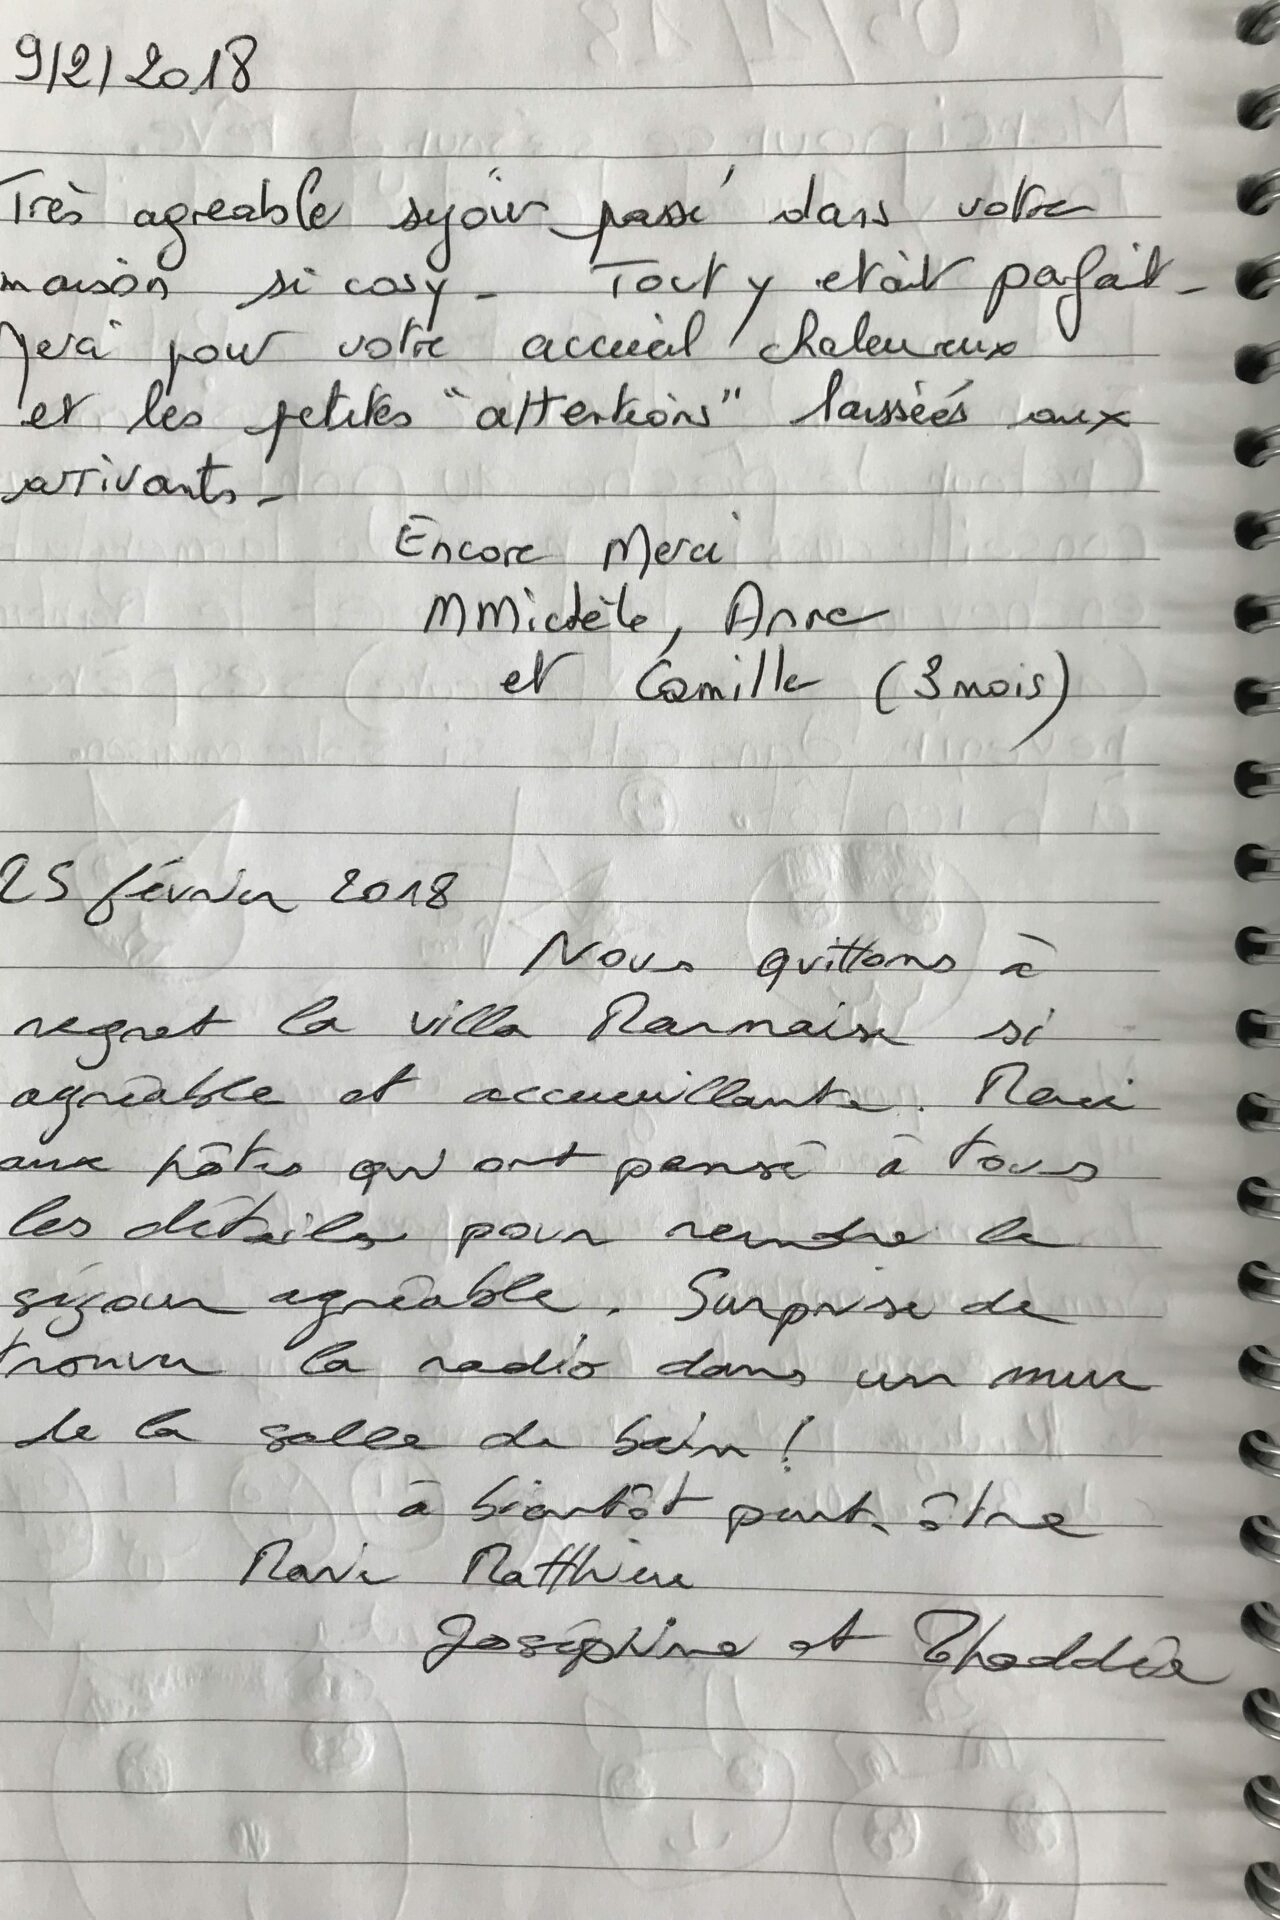 9/2/2018
Très agréable séjour passé dans votre
maison si cosy - Tout y etait parfait -
Merci pour votre accueil chaleureux
et les petites "attentions" laissées aux
arrivants -
Encore Merci
MMichèle, Anne
et Camille (3 mois)
25 février 2018
Nous quittons à
regret la villa Marmaise si
agréable et accueuillante. Merci
aux hôtes qui ont pensé à tous
les détails pour rendre le
séjour agréable. Surprise de
trouver la radio dans un mur
de la salle de bain !
à bientôt peut-être
Marie Matthieu
Joséphine et Thaddée